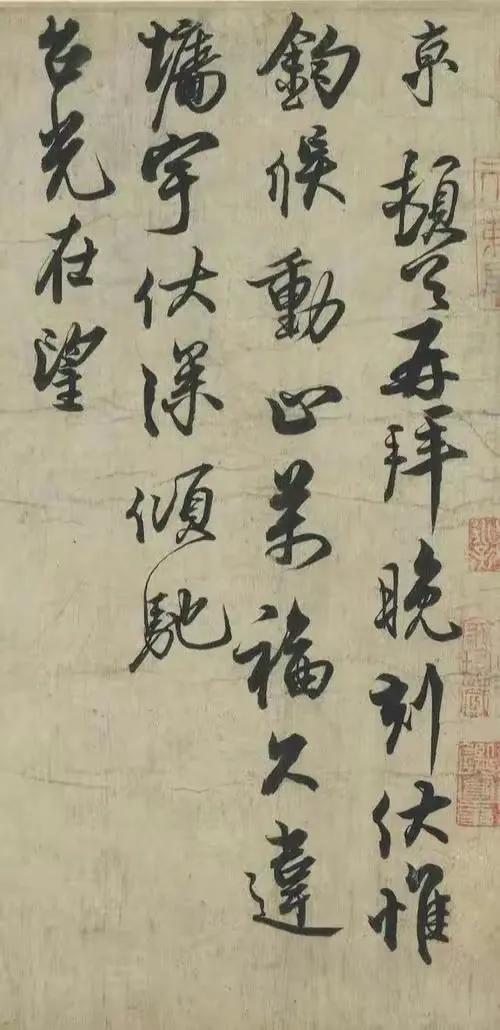 京 頓首再拜晚刻伏惟
鈞候動止萬福久違
墉宇伏深傾馳
台光在望